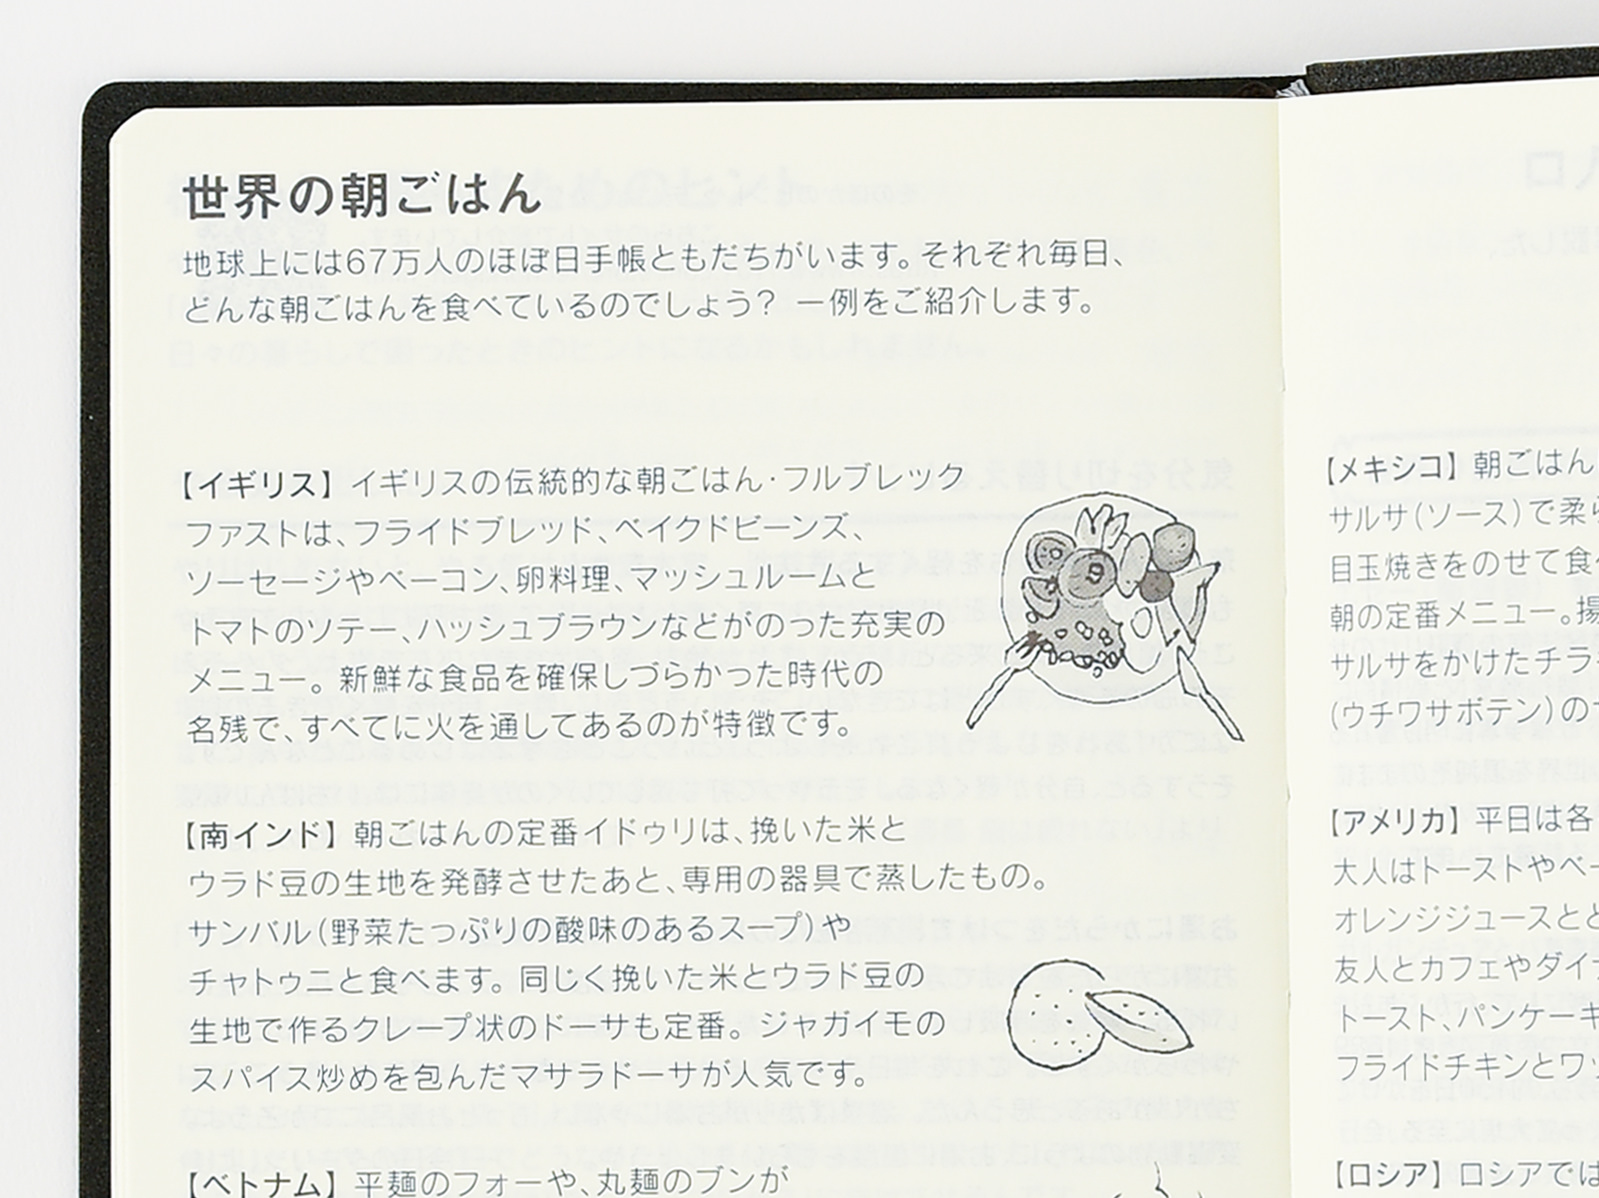 世界の朝ごはん
地球上には67万人のほぼ日手帳ともだちがいます。それぞれ毎日、
どんな朝ごはんを食べているのでしょう？ 一例をご紹介します。
【イギリス】イギリスの伝統的な朝ごはん・フルブレック
ファストは、フライドブレッド、ベイクドビーンズ、
ソーセージやベーコン、卵料理、マッシュルームと
トマトのソテー、ハッシュブラウンなどがのった充実の
メニュー。新鮮な食品を確保しづらかった時代の
名残で、すべてに火を通してあるのが特徴です。
【南インド】朝ごはんの定番イドゥリは、挽いた米と
ウラド豆の生地を発酵させたあと、専用の器具で蒸したもの。
サンバル（野菜たっぷりの酸味のあるスープ）や
チャトゥニと食べます。同じく挽いた米とウラド豆の
生地で作るクレープ状のドーサも定番。ジャガイモの
スパイス炒めを包んだマサラドーサが人気です。
【ベトナム】平麺のフォーや、丸麺のブンが
【メキシコ】朝ごはん
サルサ（ソース）で柔ら
目玉焼きをのせて食
朝の定番メニュー。揚
サルサをかけたチラ
（ウチワサボテン）の
【アメリカ】平日は各
大人はトーストやベー
オレンジジュースとと
友人とカフェやダイナ
トースト、パンケーキ
フライドチキンとワッ
【ロシア】ロシアでは